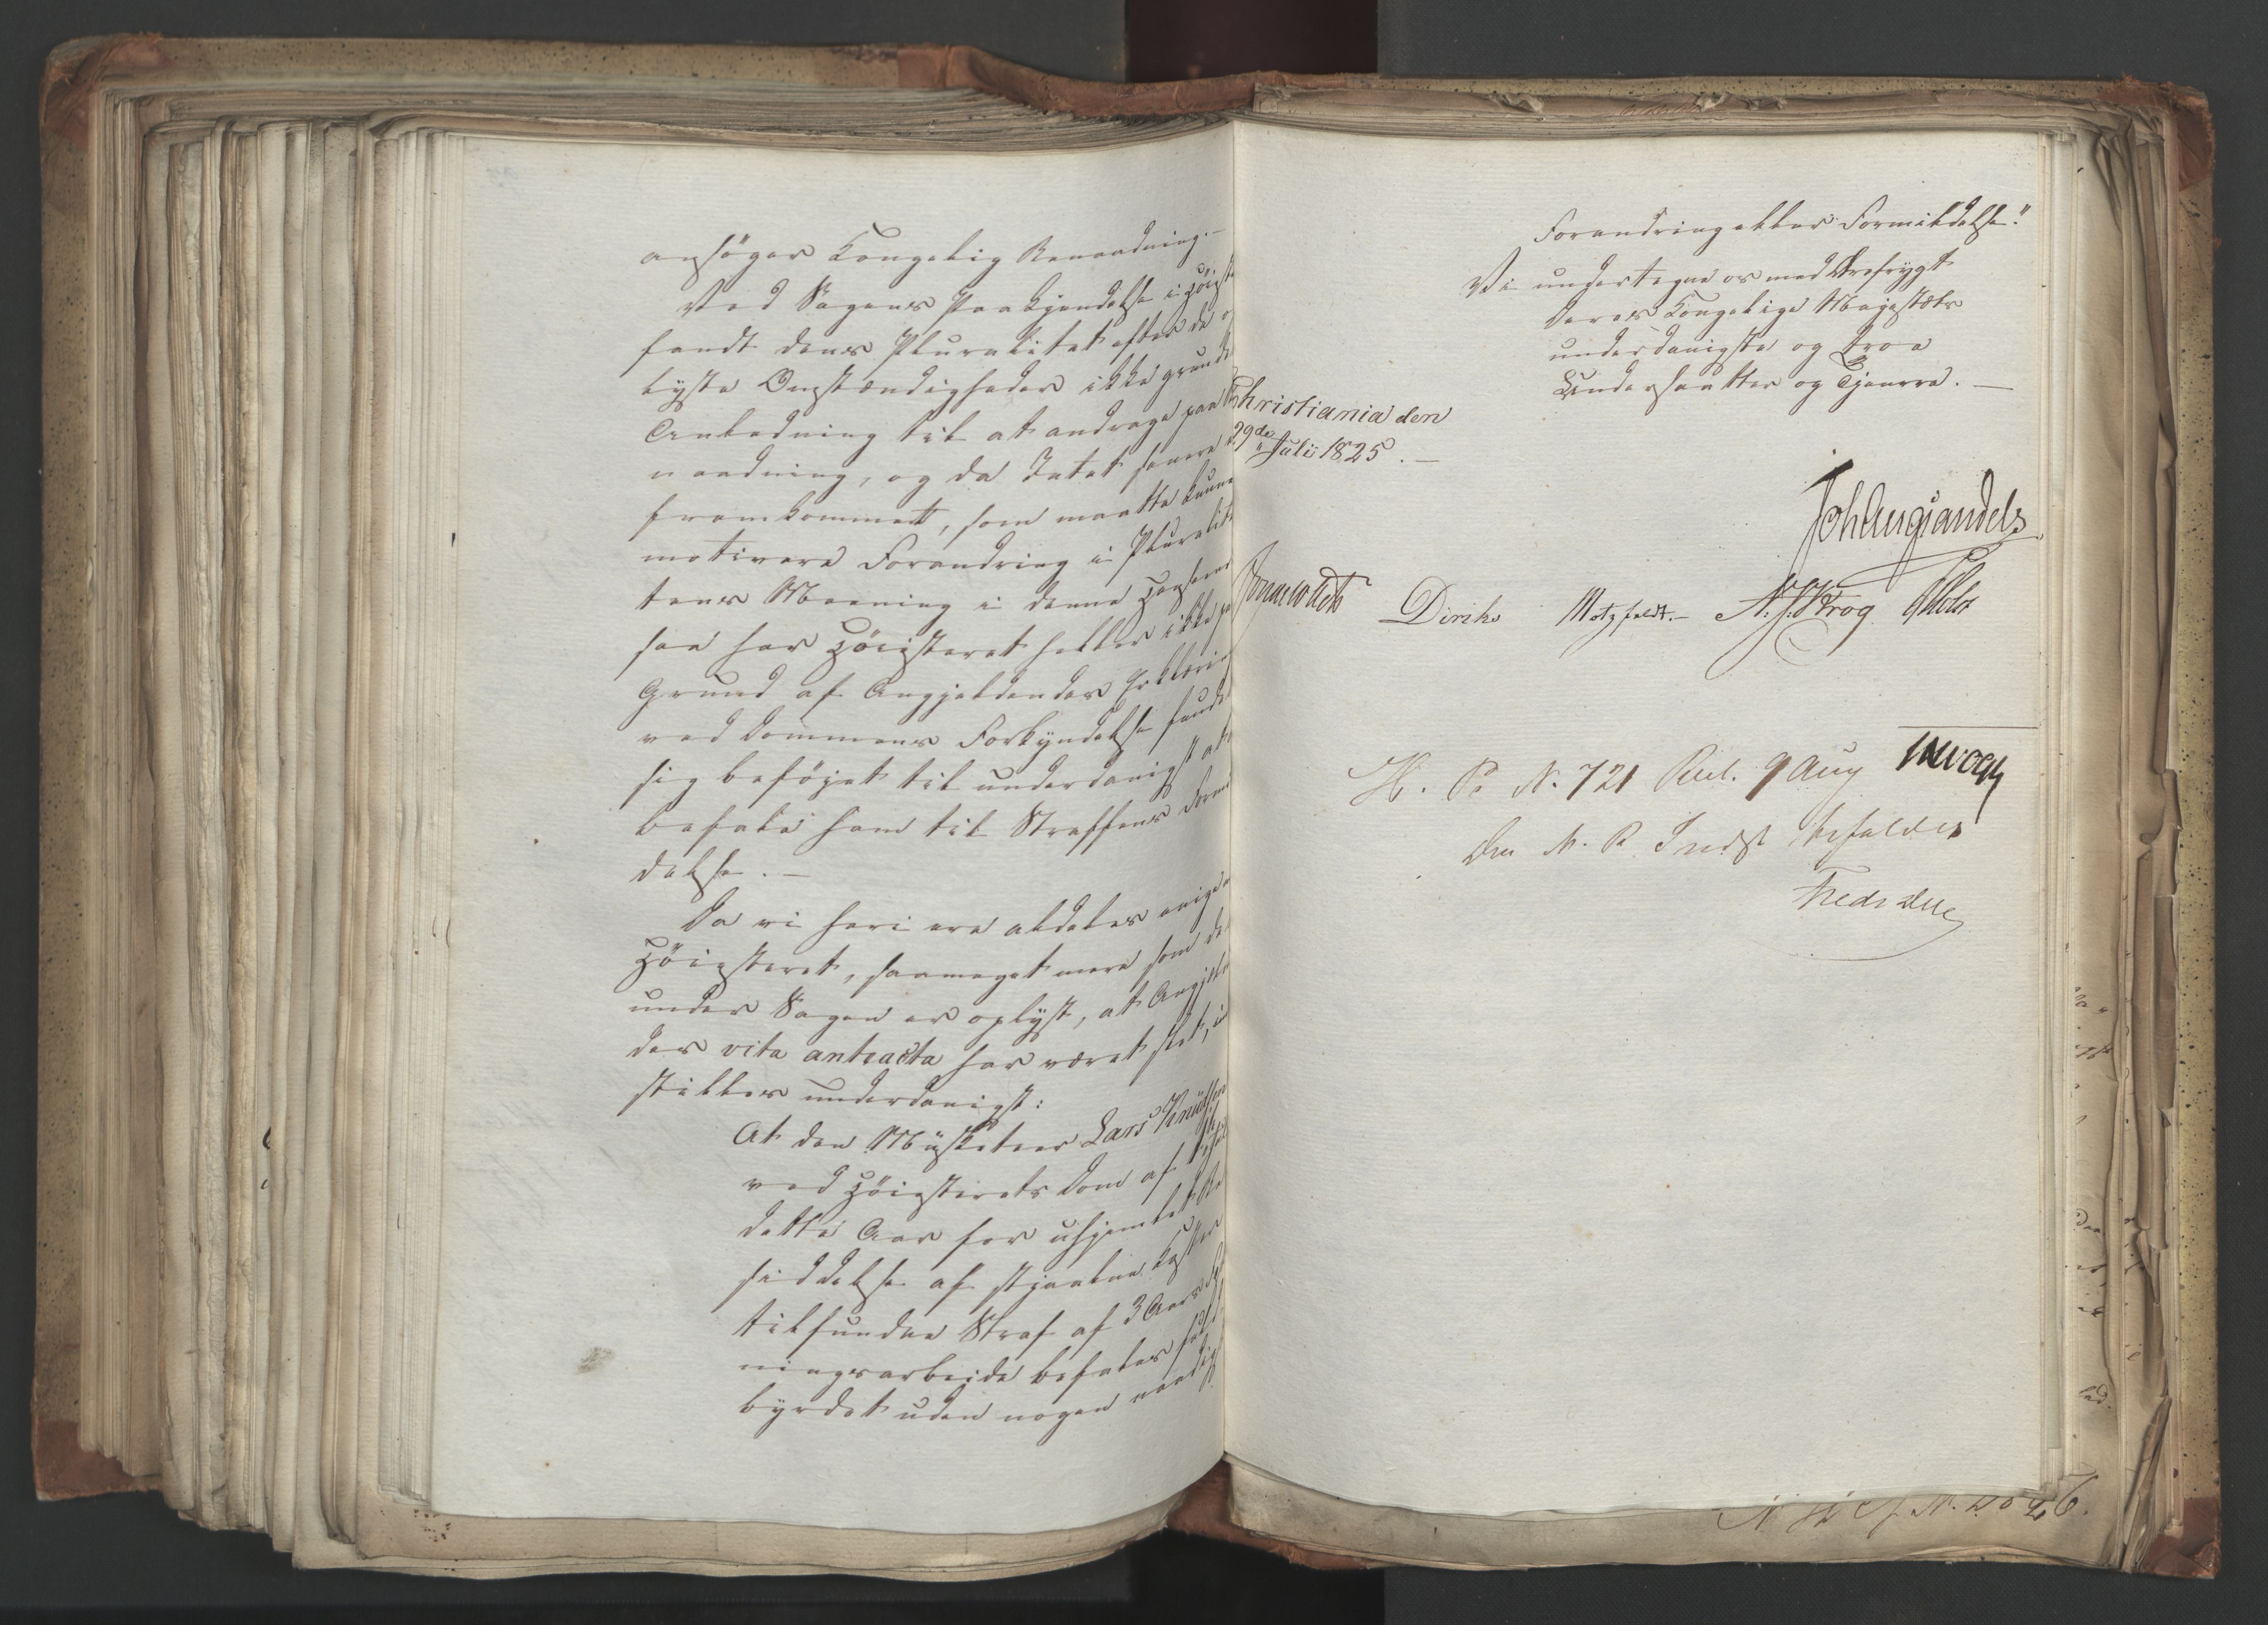 ansøger Kongelig Benaadning. —
Ved Sagens Paakjendelse i Høieste
fandt dens Pluralitet efter de o
lyste Omstændigheder ikke grundet
Anledning til at andrage paa
naadning, og da Intet senere
fremkommet, som maatte kunne
motivere Forandring i Pluralite
tens Meening i denne Henseende
saa har Høiesteret heller ikke paa
Grund af Angjeldendes Erklæring
ved Dommens Forkyndelse fundet
sig beføjet til underdanigst at
befale ham til Straffens Formil
delse. —
Da vi heri ere aldeles enige
Høiesteret, saameget mere som det
under Sagen er oplyst, at Angjelden
des vita anteacta har været slet, ind
stilles underdanigst:
At den Musketeer Lars Knudsen
ved Høiesterets Dom af
dette Aar for uhjemlet Be
siddelse af stjaalne Koster
tilfundne Straf af 3 Aars
ningsarbeide befales fuld
byrdet uden nogen naadigst
Forandring eller Formildelse."
Vi undertegne os med Ærefrygt
Deres Kongelige Majestæts
underdanigste og troe
Undersaatter og Tjenere. —
Christiania den
29de Juli 1825. —
Joh Aug Sandels
Sommerhielm Diriks Motzfeldt. N. J. Krog Holst
H. P. N. 721 Rul. 9 Aug JHVogt
Den N. R. Indst bifaldes
Fredr Due